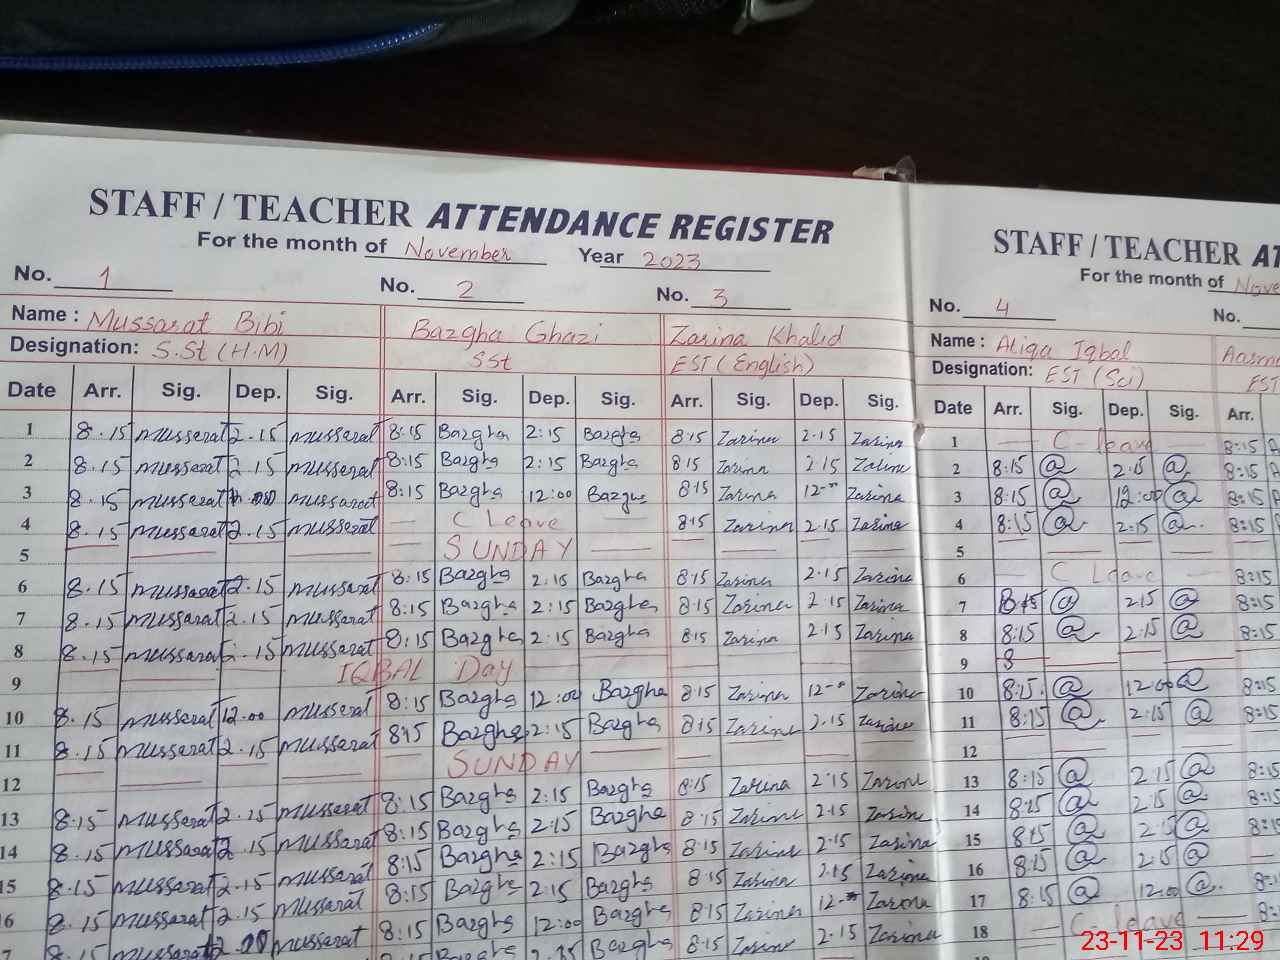 STAFF / TEACHER ATTENDANCE REGISTER
For the month of November Year 2023
No. 1 No. 2 No. 3
Name : Mussarat Bibi Bazgha Ghazi Zarina Khalid
Designation: S.St (H.M) SSt EST (English)
Date Arr. Sig. Dep. Sig. Arr. Sig. Dep. Sig. Arr. Sig. Dep. Sig.
1 8.15 mussarat 2.15 mussarat 8:15 Bazgha 2:15 Bazgha 8:15 Zarina 2.15 Zarina
2 8.15 mussarat 2.15 mussarat 8:15 Bazgha 2:15 Bazgha 8:15 Zarina 2.15 Zarina
3 8.15 mussarat mussarat 8:15 Bazgha 12:00 Bazgha 8:15 Zarina 12 Zarina
4 8.15 mussarat 2.15 mussarat C Leave 8:15 Zarina 2.15 Zarina
5 SUNDAY
6 8.15 mussarat 2.15 mussarat 8:15 Bazgha 2:15 Bazgha 8:15 Zarina 2.15 Zarina
7 8.15 mussarat 2.15 mussarat 8:15 Bazgha 2:15 Bazgha 8:15 Zarina 2.15 Zarina
8 8.15 mussarat .15 mussarat 8:15 Bazgha 2:15 Bazgha 8:15 Zarina 2.15 Zarina
9 IQBAL Day
10 8.15 mussarat 12.00 mussarat 8:15 Bazgha 12:00 Bazgha 8:15 Zarina 12 Zarina
11 8.15 mussarat 2.15 mussarat 8:15 Bazgha 2:15 Bazgha 8:15 Zarina 2.15 Zarina
12 SUNDAY
13 8.15 mussarat 2.15 mussarat 8:15 Bazgha 2:15 Bazgha 8:15 Zarina 2.15 Zarina
14 8.15 mussarat 2.15 mussarat 8:15 Bazgha 2:15 Bazgha 8:15 Zarina 2.15 Zarina
15 8.15 mussarat 2.15 mussarat 8:15 Bazgha 2:15 Bazgha 8:15 Zarina 2.15 Zarina
6 8.15 mussarat 2.15 mussarat 8:15 Bazgha 2:15 Bazgha 8:15 Zarina 2.15 Zarina
7 8.15 mussarat mussarat 8:15 Bazgha 12:00 Bazgha 8:15 Zarina 12 Zarina
Bazgha 8:15 Zarina 2.15 Zarina
STAFF / TEACHER AT
For the month of Nove
No. 4 No.
Name : Atiqa Iqbal
Designation: EST (Sci) EST
Date Arr. Sig. Dep. Sig. Arr.
1 C-leave 8:15
2 8:15 @ 2:15 @ 8:15
3 8:15 @ 12:00 @ 8:15
4 8:15 @ 2:15 @ 8:15
5
6 C Leave 8:15
7 8:15 @ 2:15 @ 8:15
8 8:15 @ 2:15 @ 8:15
9 8
10 8:15 @ 12:00 @ 8:15
11 8:15 @ 2:15 @ 8:15
12
13 8:15 @ 2:15 @ 8:15
14 8:15 @ 2:15 @ 8:15
15 8:15 @ 2:15 @
16 8:15 @ 2:15 @
17 8:15 @ 12:00 @
18 C-leave
23-11-23 11:29